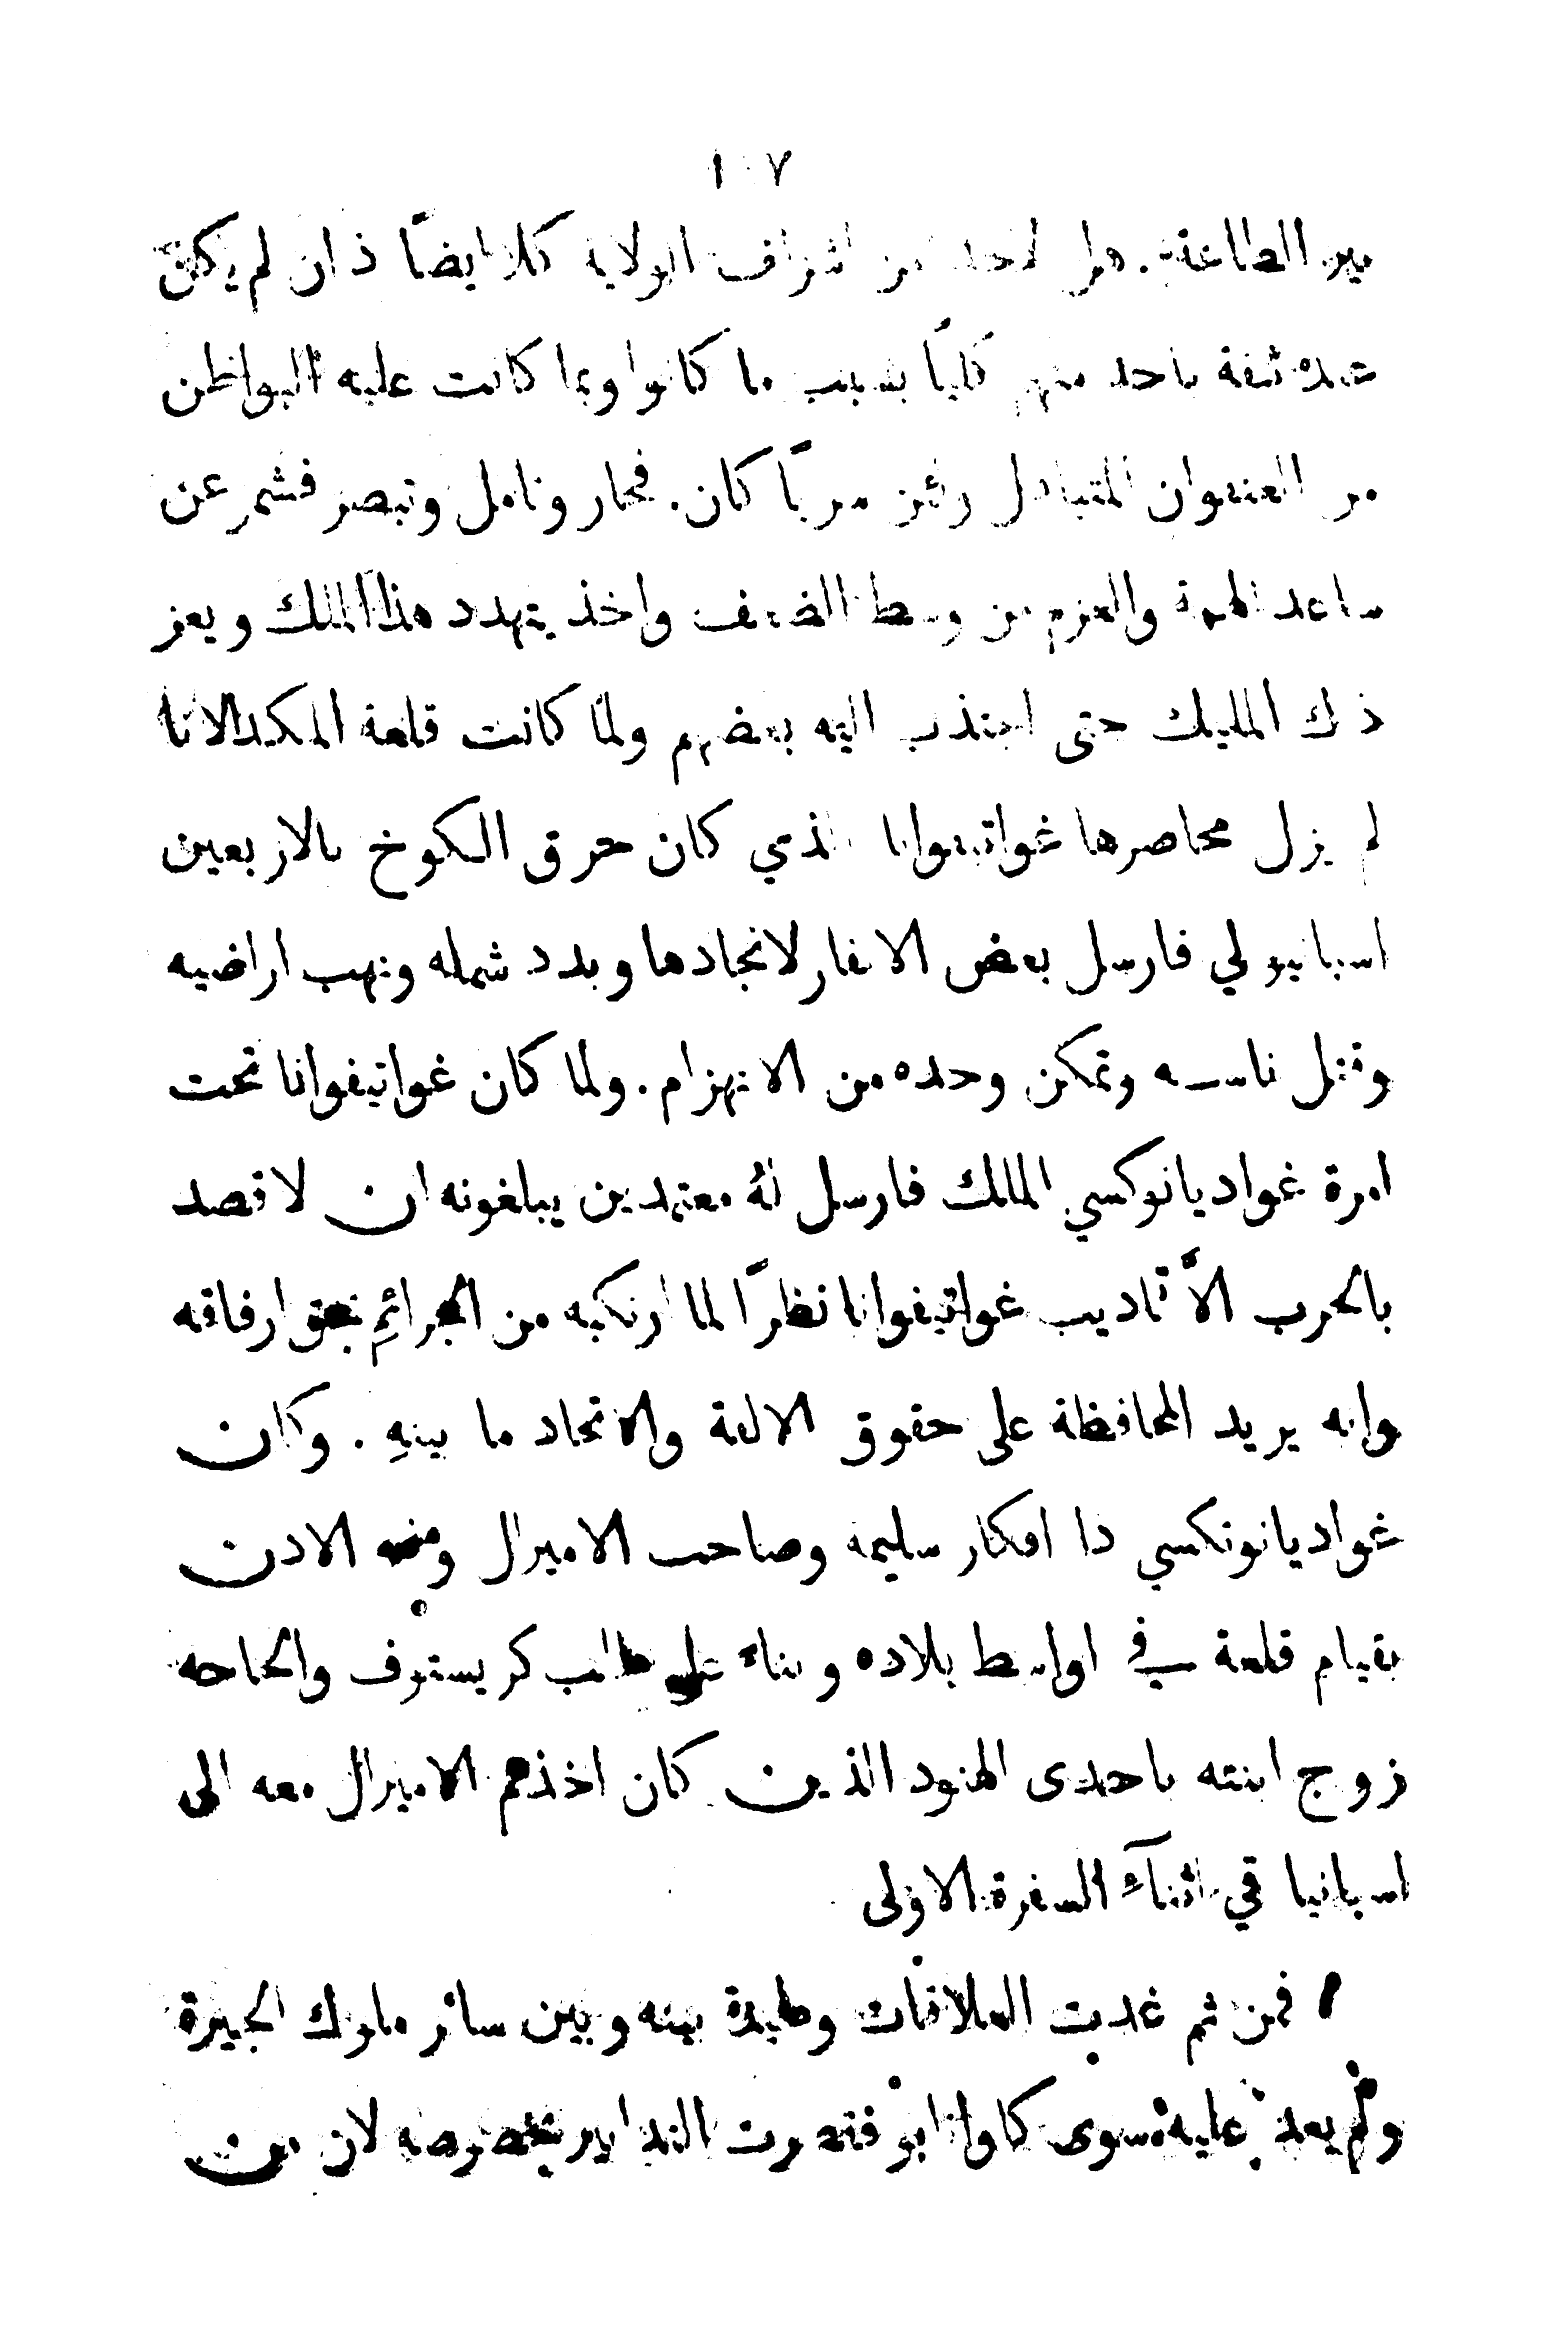 ١٠٧
الطاعة. هل لاحد من اشراف الولاية كلا ايضًا ذان لم يكن
عنده ثقة باحد منهم كليًا بسبب ما كانوا وبما كانت عليه البواطن
من العنفوان المتبادل كان. فحار وتامل وتبصر فشمر عن
ساعد الهمة والعزم من وسط الضعف واخذ يتهدد هذا الملك ويعز
ذلك المليك حتى اجتذب اليه بعضهم ولما كانت قلعة المكدالانا
لم يزل محاصرها غواتيفوانا الذي كان حرق الكوخ بالاربعين
اسبانيولي فارسل بعض الانفار لانجادها وبدد شمله ونهب اراضيه
وقتل ناسه وتمكن وحده من الانهزام. ولما كان غواتيفوانا تحت
امرة غواديانوكسي المالك فارسل لهُ معتمدين يبلغونه ان لا قصد
بالحرب الاَّ تاديب غواتيفوانا نظرًا لما ارتكبه من الجرائمِ بحق ارفاقه
وانه يريد المحافظة على حقوق الالفة والاتحاد ما بينهِ. وكان
غواديانوتكسي ذا افكار سليمه وصاحب الاميرال ومنحه الاذن
بقيام قلعة في اواسط بلاده وبناء على طلب كريستوف والحاحه
زوج ابنته باحدى الهنود الذين كان اخذهم الاميرال معه الى
اسبانيا في اثنآءِ السفرة الاولى
فمن ثم غدت العلاقات وطيدة بينه وبين سائر ملوك الجيرة
ولم يعد عليه سوى كاوانابو فتصورت التدابير بخصوصه لان من